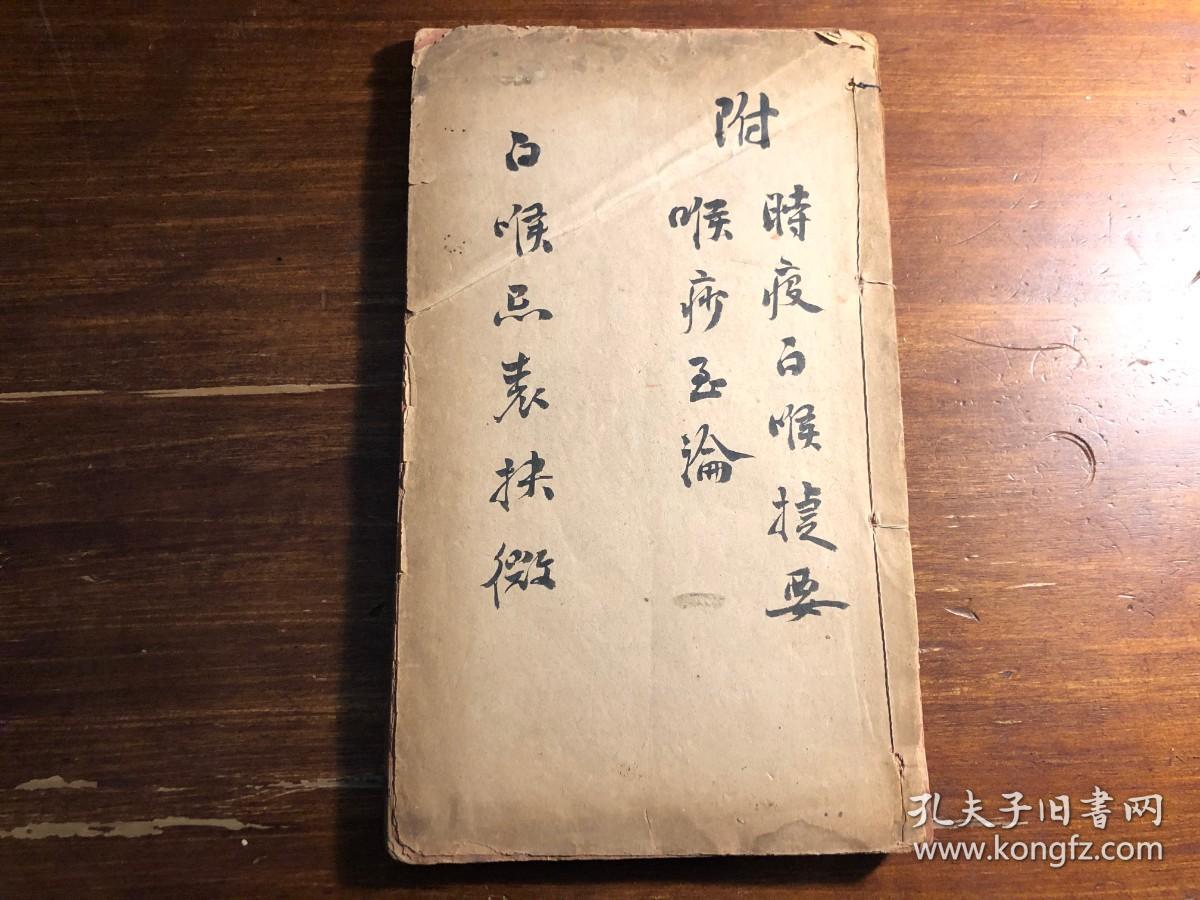 附
時疫白喉捷要
喉痧至論
白喉忌表抉微
孔夫子旧書网
www.kongfz.com